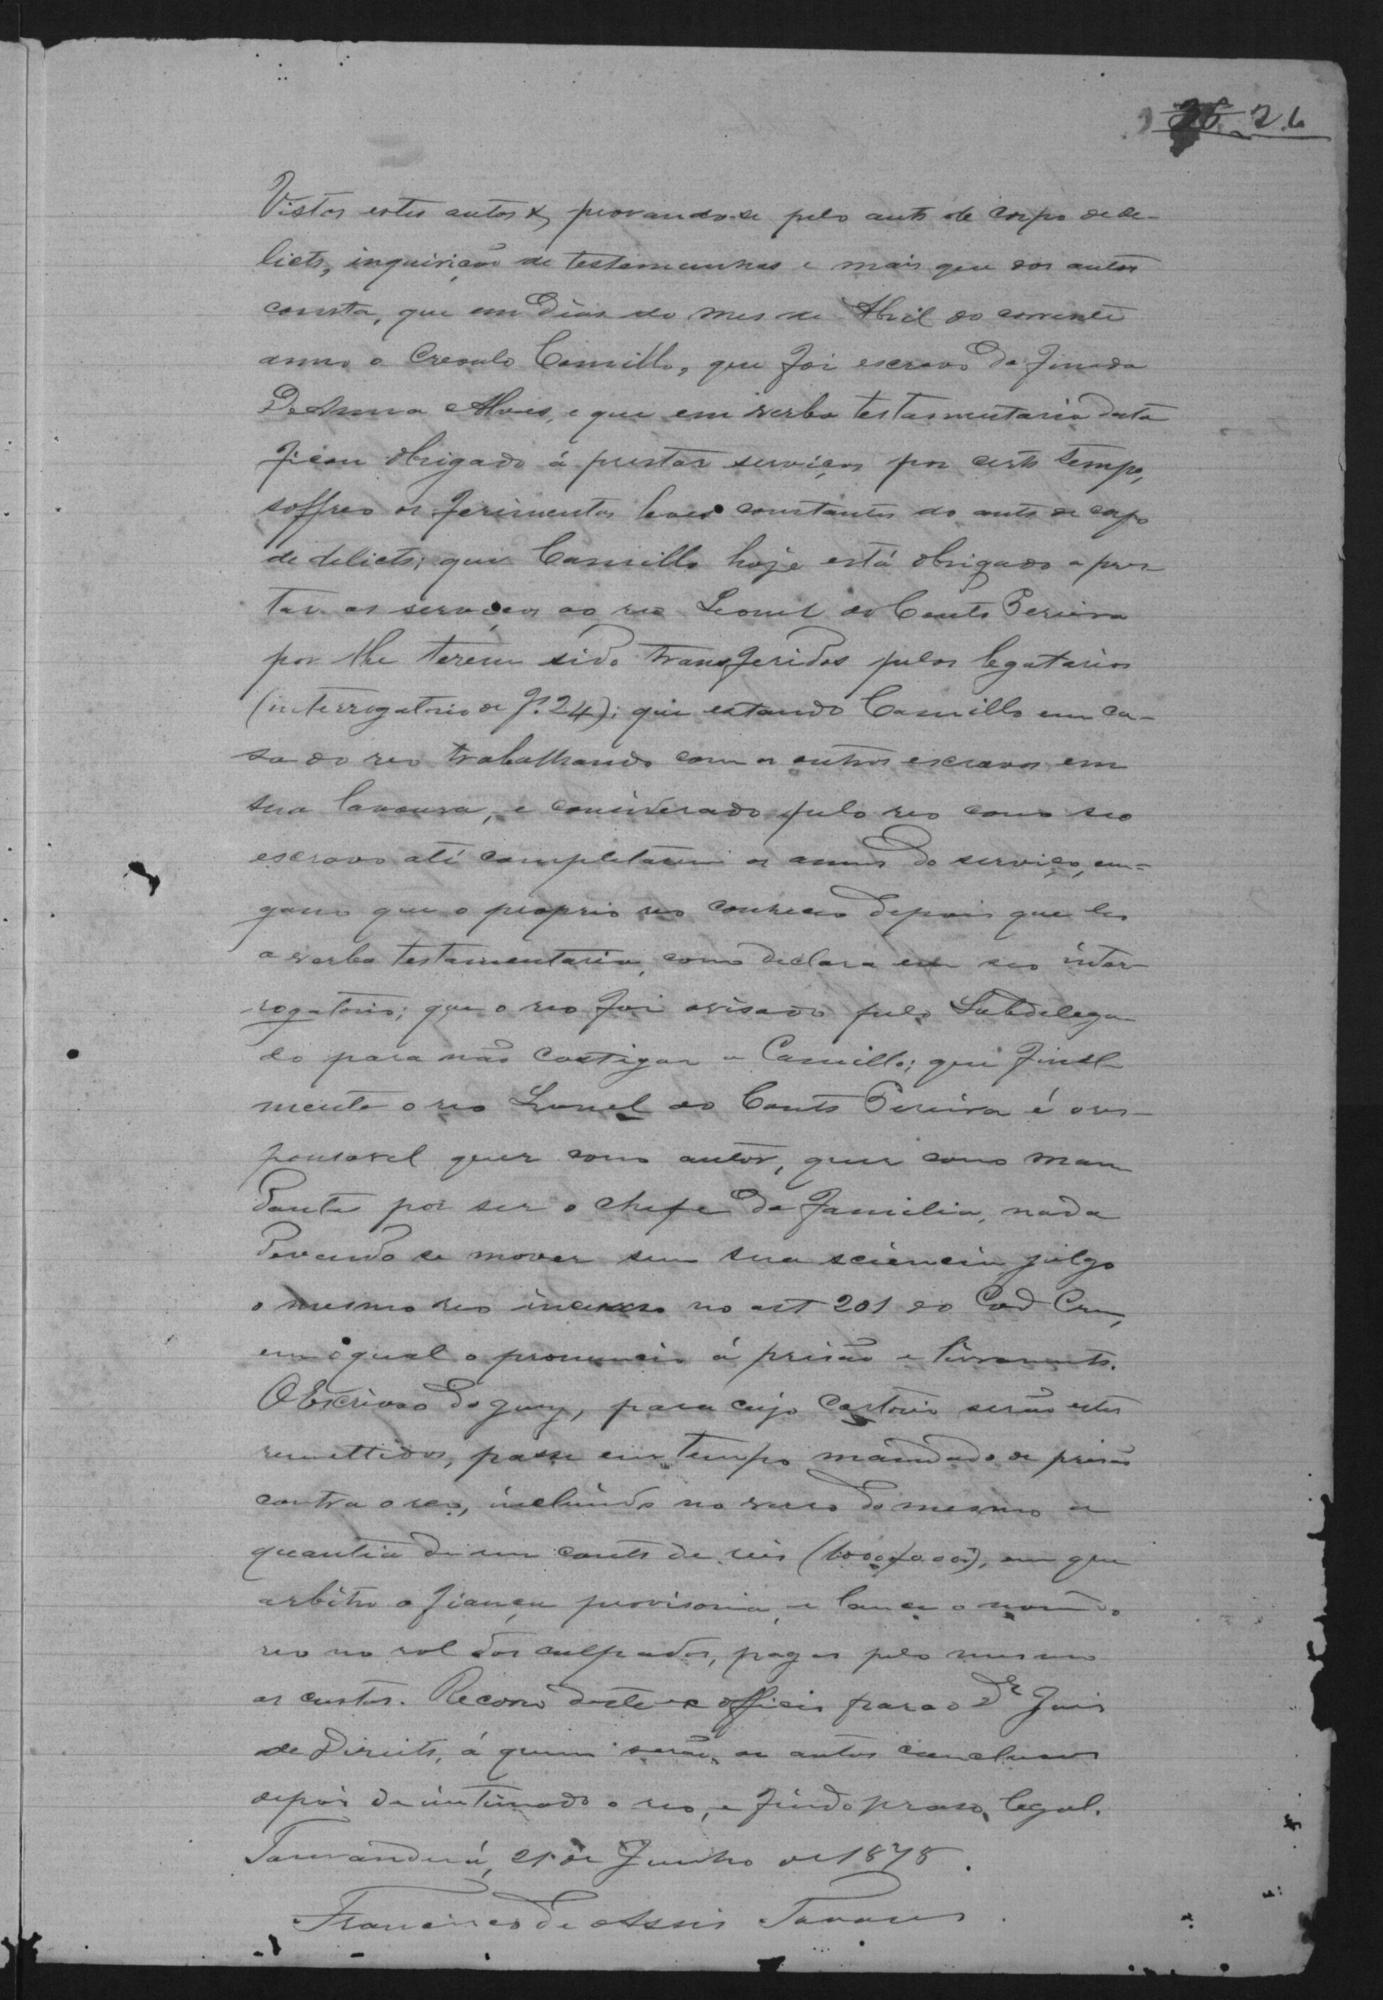 26 26
Vistos estes autos &, provando-se pelo auto de corpo de de-
licto, inquirição de testemunhas e mais que dos autos
consta, que em dias do mes de Abril do corrente
anno o creoulo Camillo, que foi escravo da finada
D. Anna Alves, e que em verba testamentaria desta
ficou obrigado á prestar serviços por certo tempo,
soffreo os ferimentos leves constantes do auto de corpo
de delicto; que Camillo hoje está obrigado a pres-
tar os serviços ao reo Leonel do Couto Pereira
por lhe terem sido transferidos pelos legatarios
(interrogatorio de f. 24); que estando Camillo em ca-
sa do reo trabalhando com os outros escravos em
sua lavoura, e considerado pelo reo como seo
escravo até completarem os annos do serviço, en-
gano que o proprio reo conheceo depois que leo
a verba testamentaria, como declara em seo inter-
rogatorio; que o reo foi avisado pelo Subdelega-
do para não castigar a Camillo; que final-
mente o reo Leonel do Couto Pereira é o res-
ponsavel quer como autor, quer como man-
dante por ser o chefe da familia, nada
devendo se mover sem sua sciencia, julgo
o mesmo reo incurso no art 201 do Cod Crim,
em o qual o pronuncio á prisão e livramento.
O Escrivão do Jury, para cujo cartorio serão estes
remettidos, passe em tempo mandado de prisão
contra o reo, incluindo no verso do mesmo a
quantia de um conto de reis (1000$000), em que
arbitro a fiança provisoria, e lance o nome do
reo no rol dos culpados, pagas pelo mesmo
as custas. Recorro deste ex officio para o Dr Juis
de Direito, á quem serão os autos conclusos
depois de intimado o reo, e findo praso legal.
Tamanduá, 21 de Junho de 1878.
Francisco de Assis Tavares.